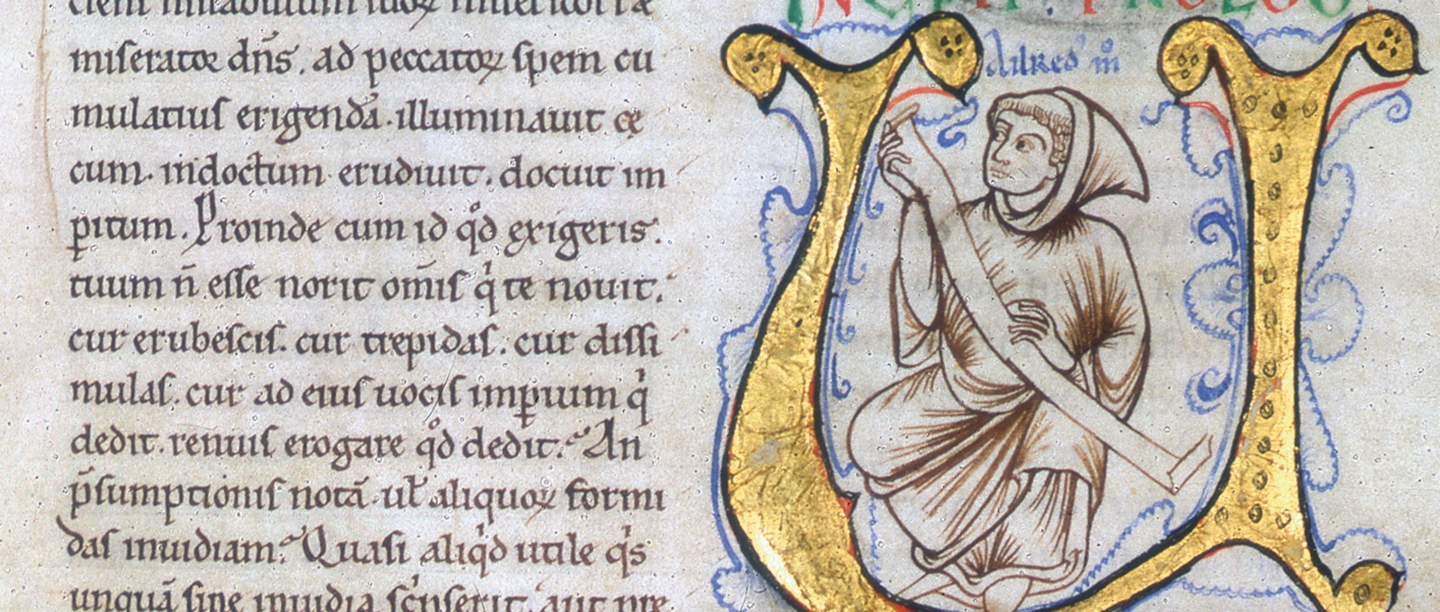 miseratoꝛ dn̄s. ad peccatoꝝ spem cu
mulatius erigendā. illuminauit cę
cum. indoctum erudiuit. docuit im
ꝑitum. Proinde cum id qͦd exigeris.
tuum n̄ esse norit om̄is qͥ te nouit.
cur erubescis. cur trepidas. cur dissi
mulas. cur ad eius uocis imꝑium qͥ
dedit. renuis erogare qͦd dedit. An
p̄sumptionis notā. ul̵ aliquoꝝ formi
das inuidiam. Quasi aliqͥd utile qͥs
unquā sine inuidia sc̓pserit. aut pre
Ailred